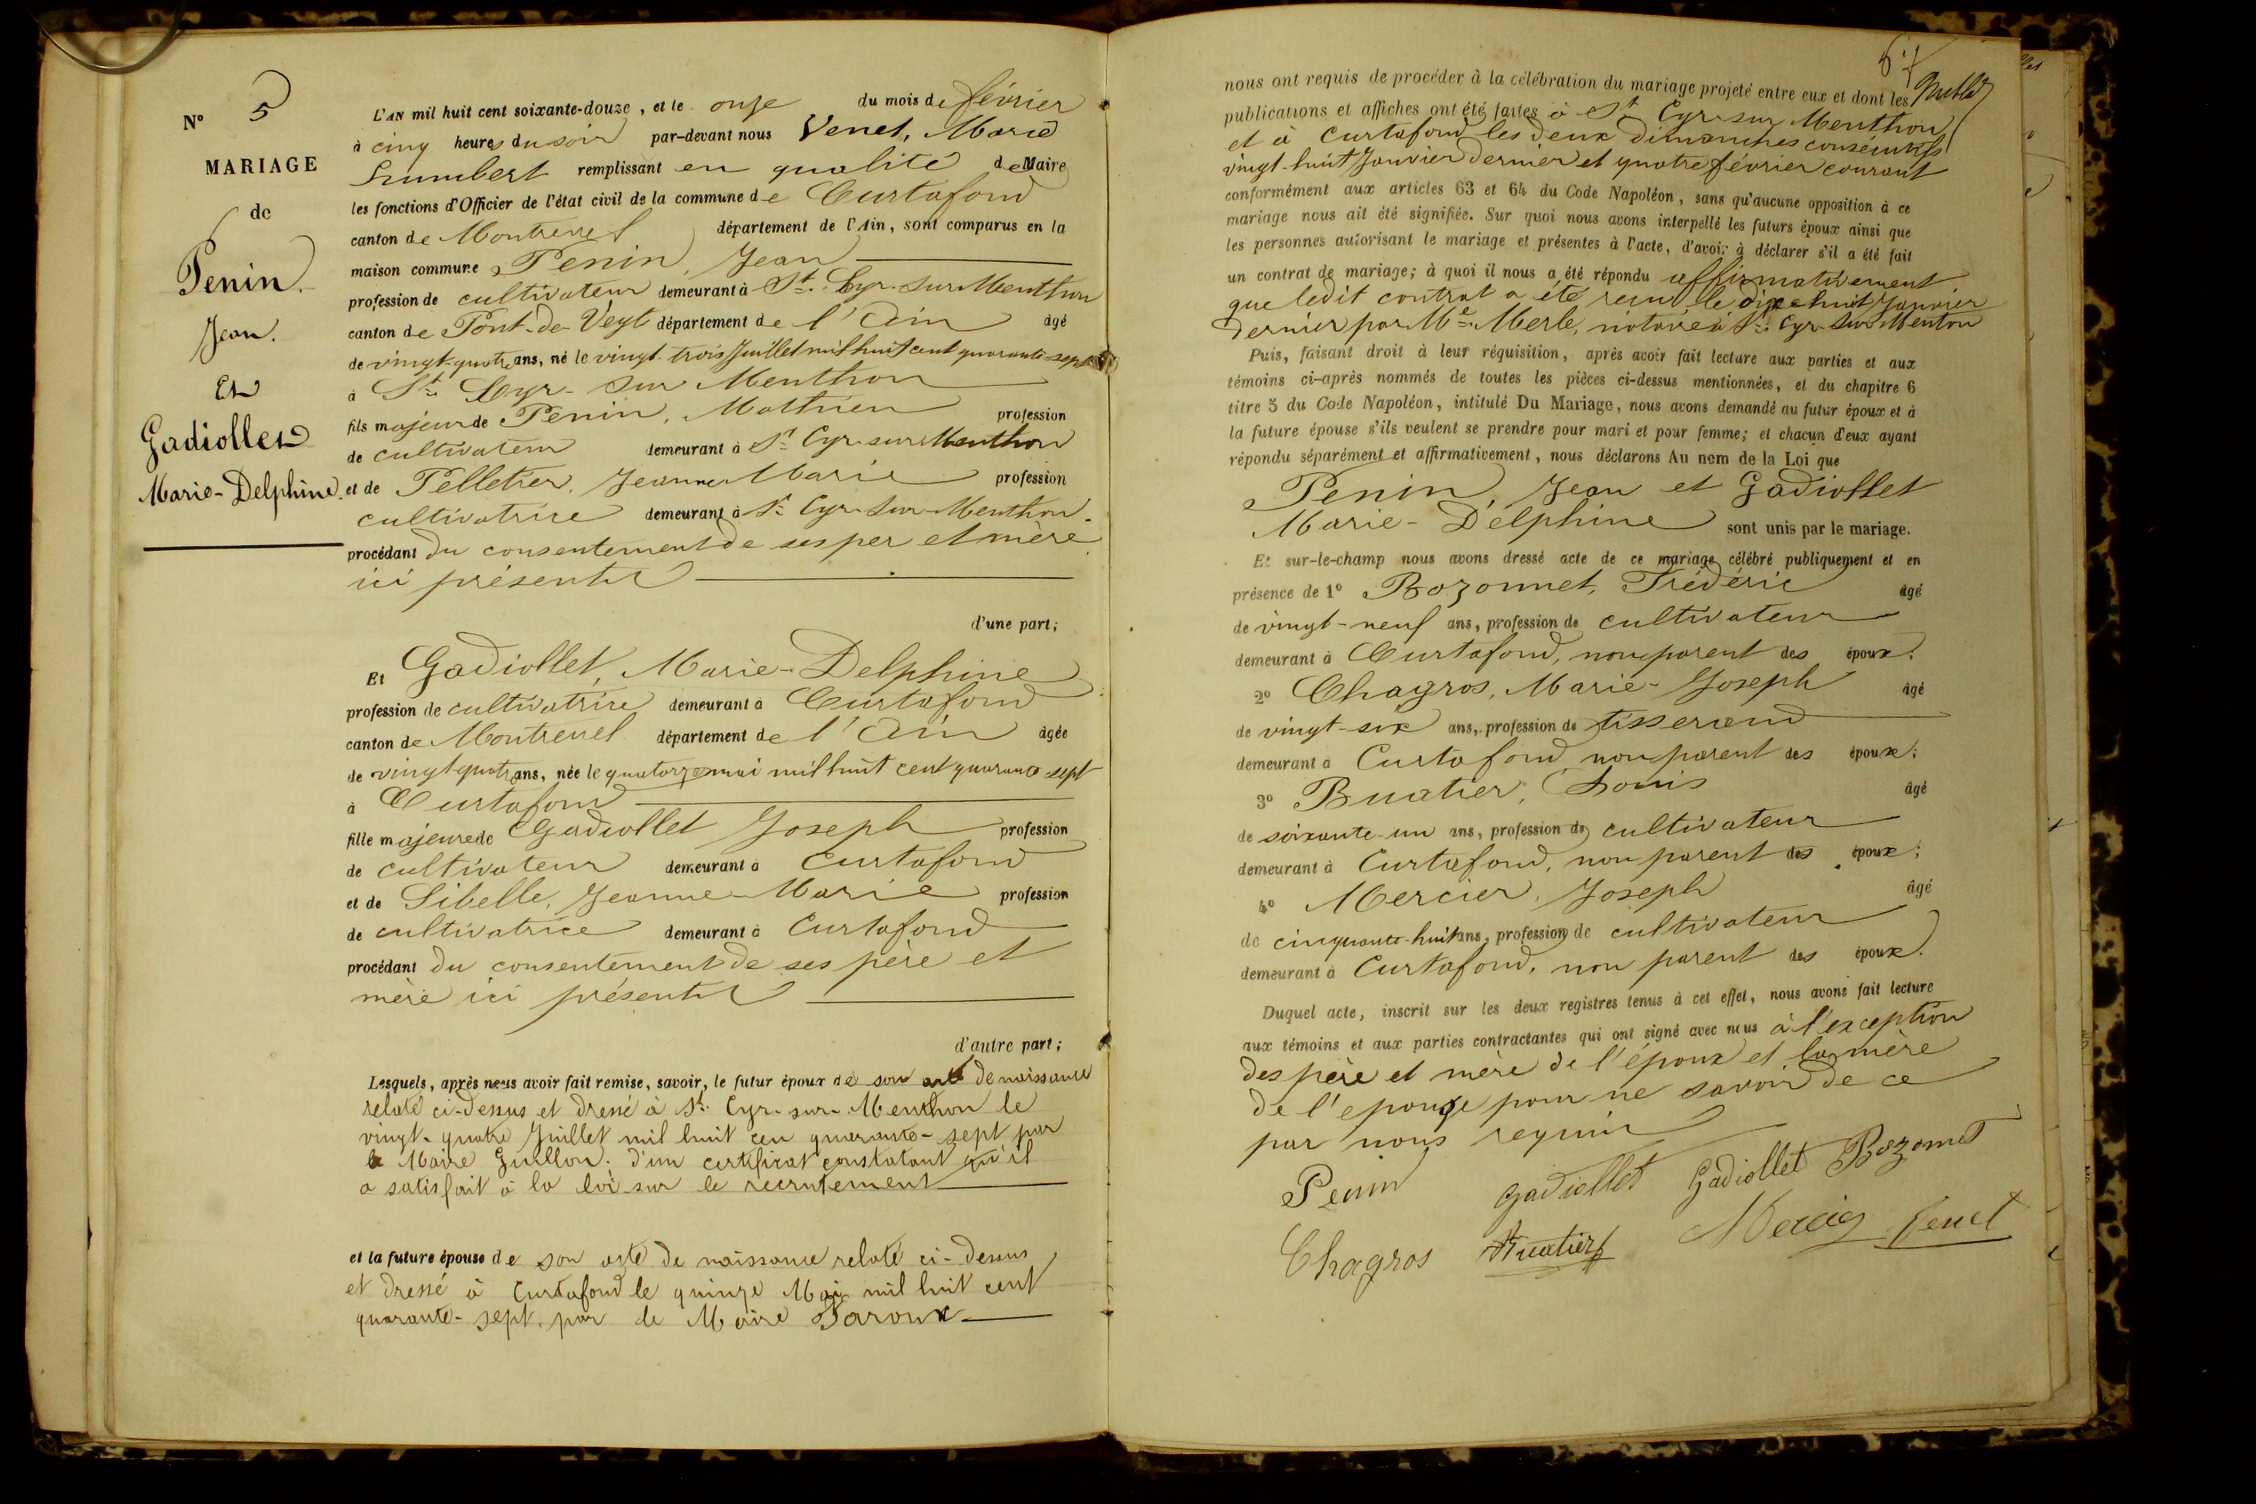 N° 5
MARIAGE
de
Penin.
Jean.
Et
Gadiollet
Marie-Delphine.
L'AN mil huit cent soixante-douze, et le onze du mois de février
à cinq heures du soir par-devant nous Venet, Marie
Humbert remplissant en qualité de Maire
les fonctions d'Officier de l'état civil de la commune de Curtafond
canton de Montrevel département de l'Ain, sont comparus en la
maison commune Penin, Jean
profession de cultivateur demeurant à St. Cyr-sur-Menthon
canton de Pont-de-Veyle département de l'Ain âgé
de vingt-quatre ans, né le vingt-trois Juillet mil huit cent quarante-sept
à St. Cyr-sur Menthon
fils majeur de Penin, Mathieu profession
de cultivateur demeurant à St Cyr-sur Menthon
et de Pelletier, Jeanne Marie profession
cultivatrice demeurant à St Cyr-sur-Menthon-
procédant du consentement de ses per et mère
ici présents
d'une part;
Et Gadiollet, Marie-Delphine
profession de cultivatrice demeurant à Curtafond
canton de Montrevel département de l'Ain âgée
de vingt quatre ans, née le quatorze mai mil huit cent quarante-sept
à Curtafond
fille majeure de Gadiollet Joseph profession
de cultivateur demeurant à Curtafond
et de Sibelle, Jeanne-Marie profession
de cultivatrice demeurant à Curtafond
procédant du consentement de ses père et
mère ici présents
d'autre part;
Lesquels, après nous avoir fait remise, savoir, le futur époux de son acte de naissance
relaté ci-dessus et dressé à St. Cyr-sur-Menthon le
vingt-quatre Juillet mil huit cen quarante-sept par
le Maire Guillon. d'un certificat constatant qu'il
a satisfait à la loi sur le recrutement
et la future épouse de son acte de naissance relaté ci-dessus
et dressé à Curtafond le quinze Mai mil huit cent
quarante-sept. par le Maire Paroux
nous ont requis de procéder à la célébration du mariage projeté entre eux et dont les
publications et affiches ont été faites à St Cyr-sur Menthon
et à Curtafond les deux dimanches consécutifs
vingt-huit Janvier dernier et quatre février courant
conformément aux articles 63 et 64 du Code Napoléon, sans qu'aucune opposition à ce
mariage nous ait été signifiée. Sur quoi nous avons interpellé les futurs époux ainsi que
les personnes autorisant le mariage et présentes à l'acte, d'avoir à déclarer s'il a été fait
un contrat de mariage; à quoi il nous a été répondu affirmativement
que ledit contrat a été reçu le dixe huit Janvier
dernier par Me Merle, notaire à St. Cyr-sur Menton
Puis, faisant droit à leur réquisition, après avoir fait lecture aux parties et aux
témoins ci-après nommés de toutes les pièces ci-dessus mentionnées, et du chapitre 6
titre 5 du Code Napoléon, intitulé Du Mariage, nous avons demandé au futur époux et à
la future épouse s'ils veulent se prendre pour mari et pour femme; et chacun d'eux ayant
répondu séparément et affirmativement, nous déclarons Au nom de la Loi que
Penin, Jean et Gadiollet
Marie-Délphine sont unis par le mariage.
Et sur-le-champ nous avons dressé acte de ce mariage célébré publiquement et en
présence de 1° Bozonnet, Frédéric âgé
de vingt-neuf ans, profession de cultivateur
demeurant à Curtafond, non parent des époux.
2° Chagros, Marie-Joseph âgé
de vingt-six ans, profession de tisserand
demeurant à Curtafond non parent des époux;
3° Buatier, Louis âgé
de soixante-un ans, profession de cultivateur
demeurant à Curtafond, non parent des époux;
4° Mercier, Joseph âgé
de cinquante-huit ans, profession de cultivateur
demeurant à Curtafond, non parent des époux.
Duquel acte, inscrit sur les deux registres tenus à cet effet, nous avons fait lecture
aux témoins et aux parties contractantes qui ont signé avec nous à l'exception
des père et mère de l'époux et la mère
de l'epouse pour ne savoir de ce
par nous requis
Penin Gadiollet Gadiollet Bozonnet
Chagros Buatier Mercier Venet